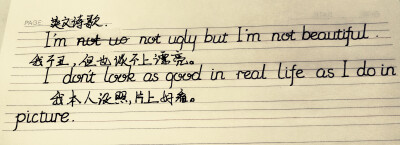 英文诗歌.
I'm not us not ugly but I'm not beautiful.
我不丑,但也谈不上漂亮。
I don't look as good in real life as I do in
我本人没照片上好看。
picture.